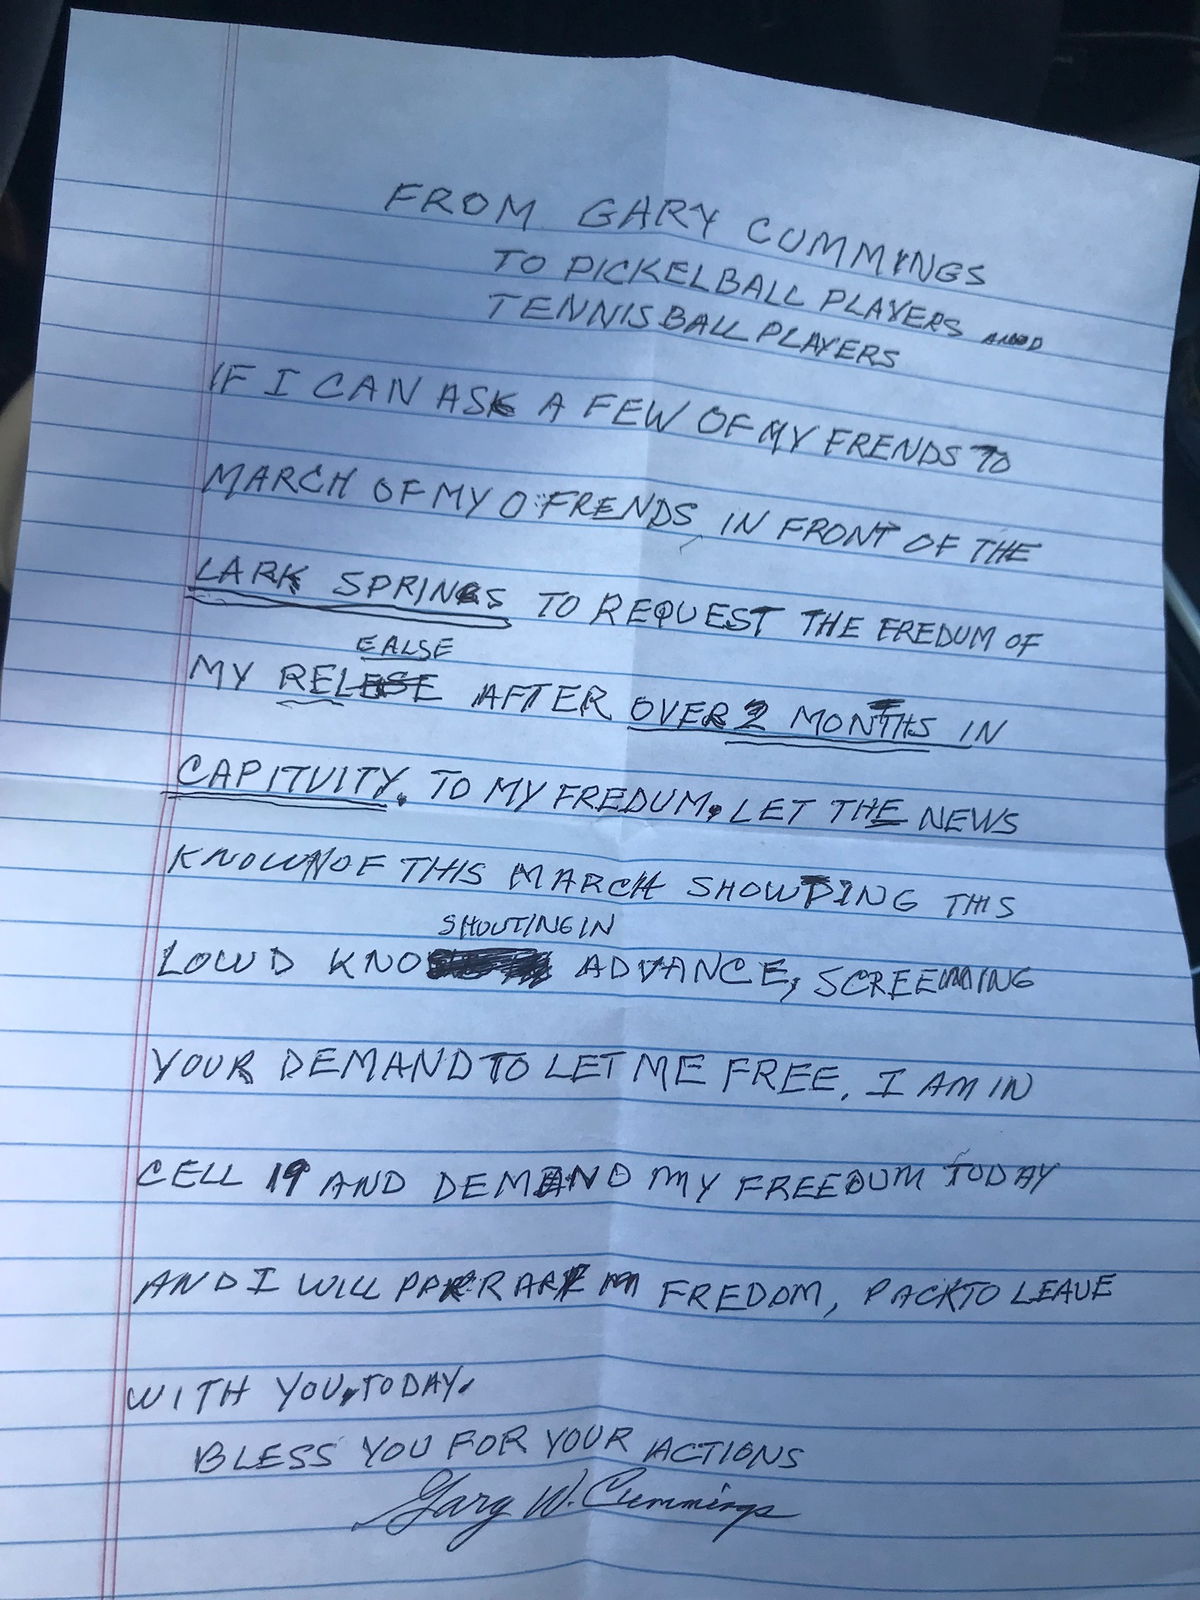 FROM GARY CUMMINGS
TO PICKELBALL PLAYERS AND
TENNISBALL PLAYERS
IF I CAN ASK A FEW OF MY FRENDS TO
MARCH OF MY O FRENDS IN FRONT OF THE
LARK SPRINGS TO REQUEST THE FREDUM OF
EALSE
MY RELESE AFTER OVER 2 MONTHS IN
CAPITUITY. TO MY FREDUM. LET THE NEWS
KNOWN OF THIS MARCH SHOWDING THIS
SHOUTING IN
LOWD KNO ADVANCE, SCREEMING
YOUR DEMAND TO LET ME FREE. I AM IN
CELL 19 AND DEMAND MY FREEDUM TODAY
AND I WILL FREDOM, PACK TO LEAVE
WITH YOU, TODAY.
BLESS YOU FOR YOUR ACTIONS
Gary W. Cummings